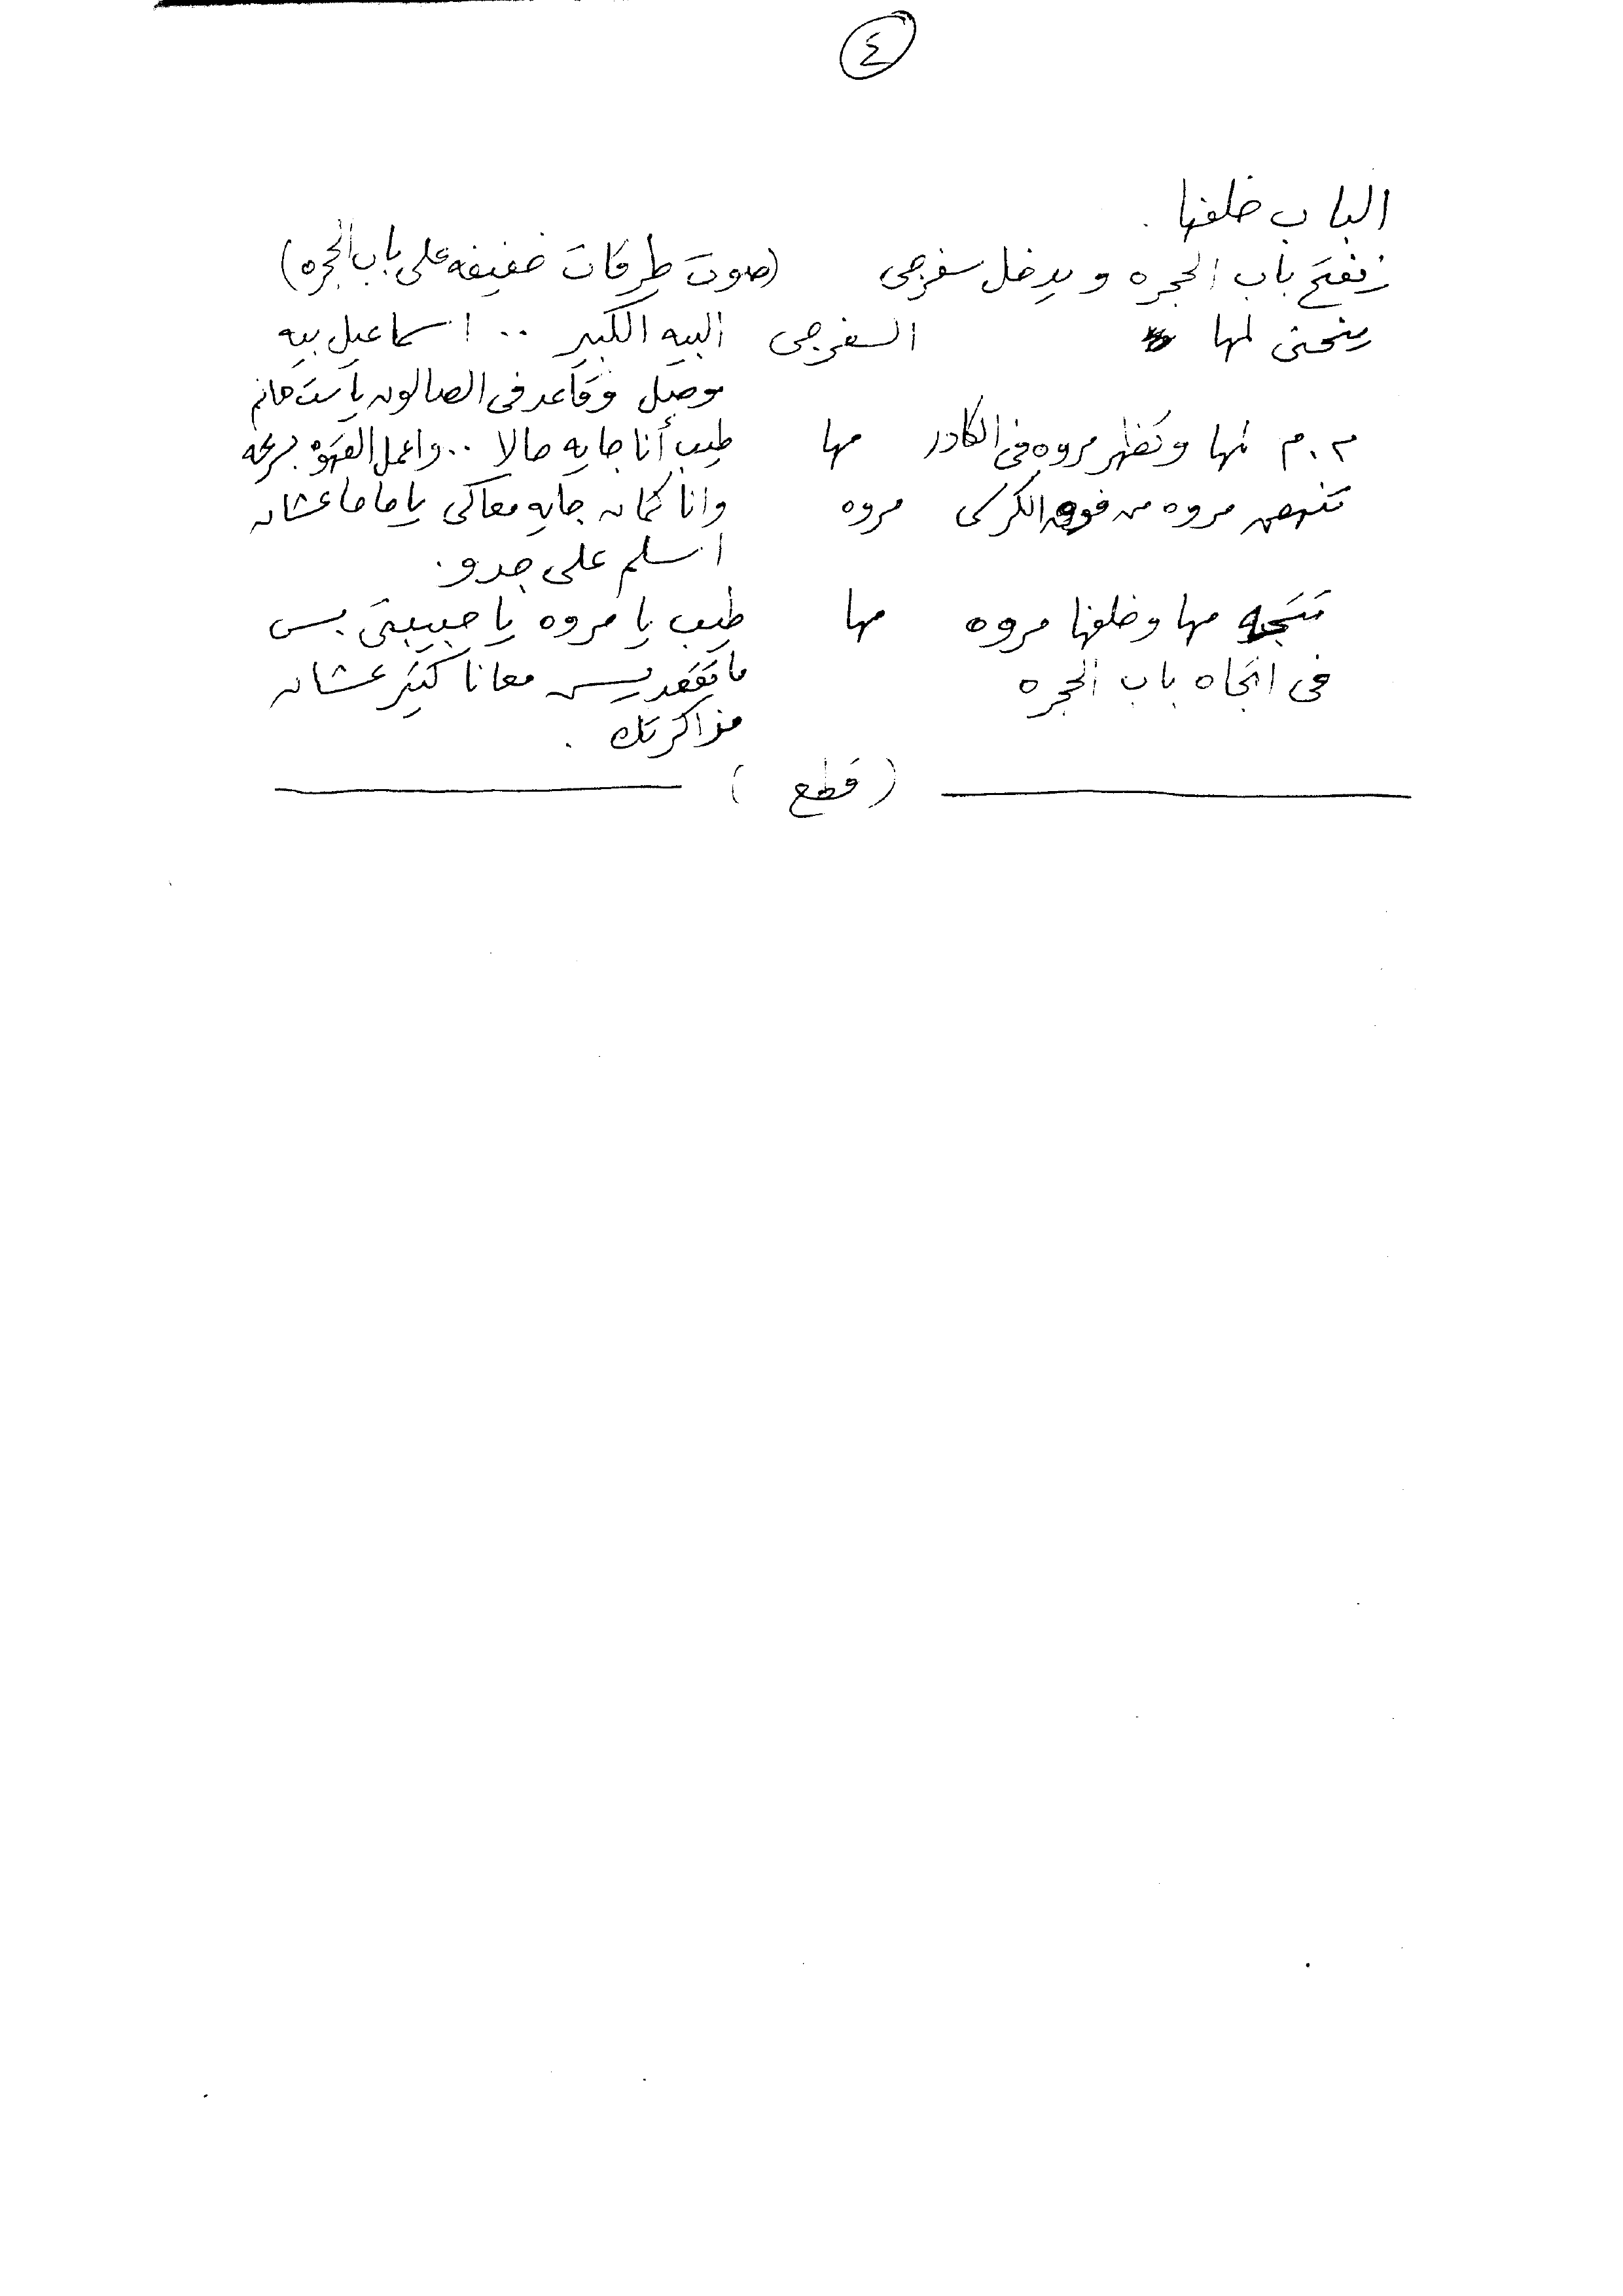 ٤
الباب خلفها .
يفتح باب الحجره ويدخل سفرجى (صوت طرقات خفيفه على باب الحجره)
ينحنى لمها السفرجى البيه الكبير .. اسماعيل بيه
وصل وقاعد فى الصالون ياست هانم
م . م لمها وتظهر مروه فى الكادر مها طيب أنا جايه حالا ... واعمل القهوه بسرعه
تنهض مروه من فوق الكرسى مروه وانا كمان جايه معاكى ياماما عشان
اسلم على جدو .
تتجه مها وخلفها مروه مها طيب يا مروه يا حبيبتى بس
فى اتجاه باب الحجره ما تقعديش معانا كتير عشان
مذاكرتك .
( قطع )